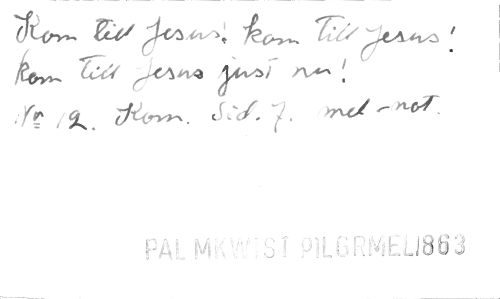 Kom till Jesus! kom till Jesus!
kom till Jesus just nu!
No 12. Kom. Sid. 7. mel-not.
PALMKWIST PILGRMEL 1863